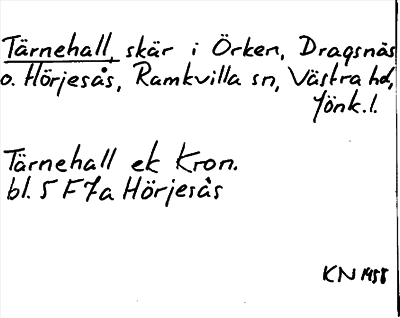 Tärnehall, skär i Örken, Dragsnäs
o. Hörjesås, Ramkvilla sn, Västra hd,
Jönk. l.
Tärnehall ek Kron.
bl. 5 F 7a Hörjesås
KN 1958